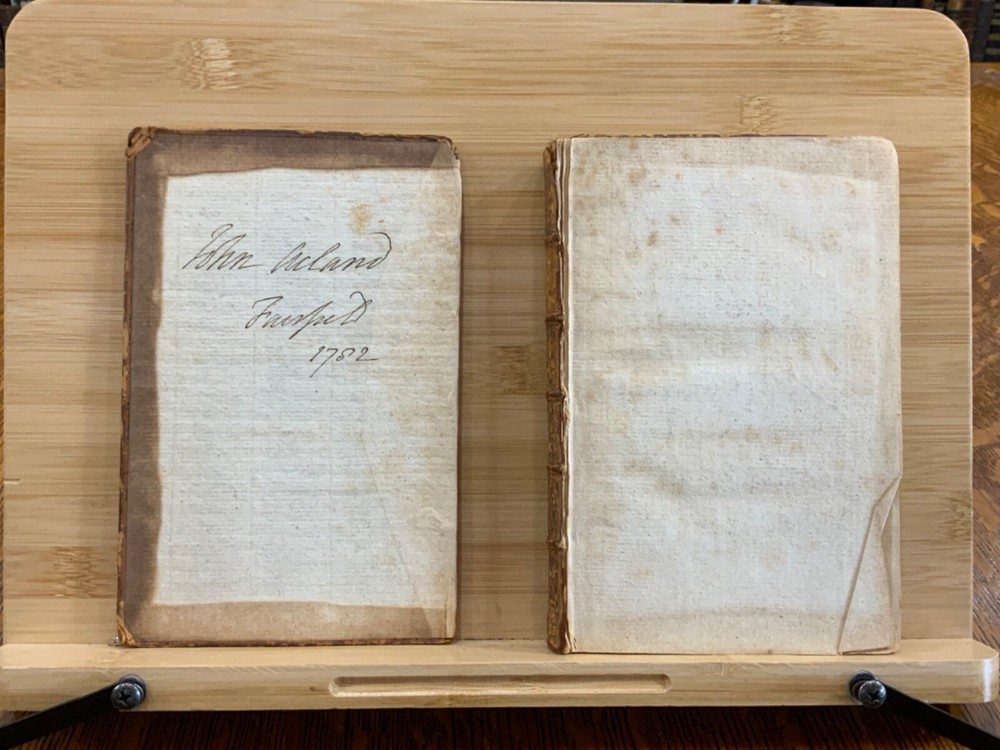 John Acland
Fairfield
1782